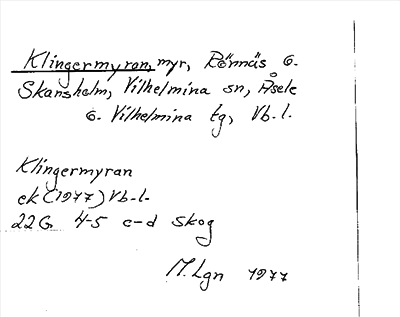 Klingermyran, myr, Rönnäs o.
Skansholm, Vilhelmina sn, Åsele
o. Vilhelmina tg, Vb.l.
Klingermyran
ek (1977) Vb-l-
22G 4-5 c-d Skog
M.Lgn 1977